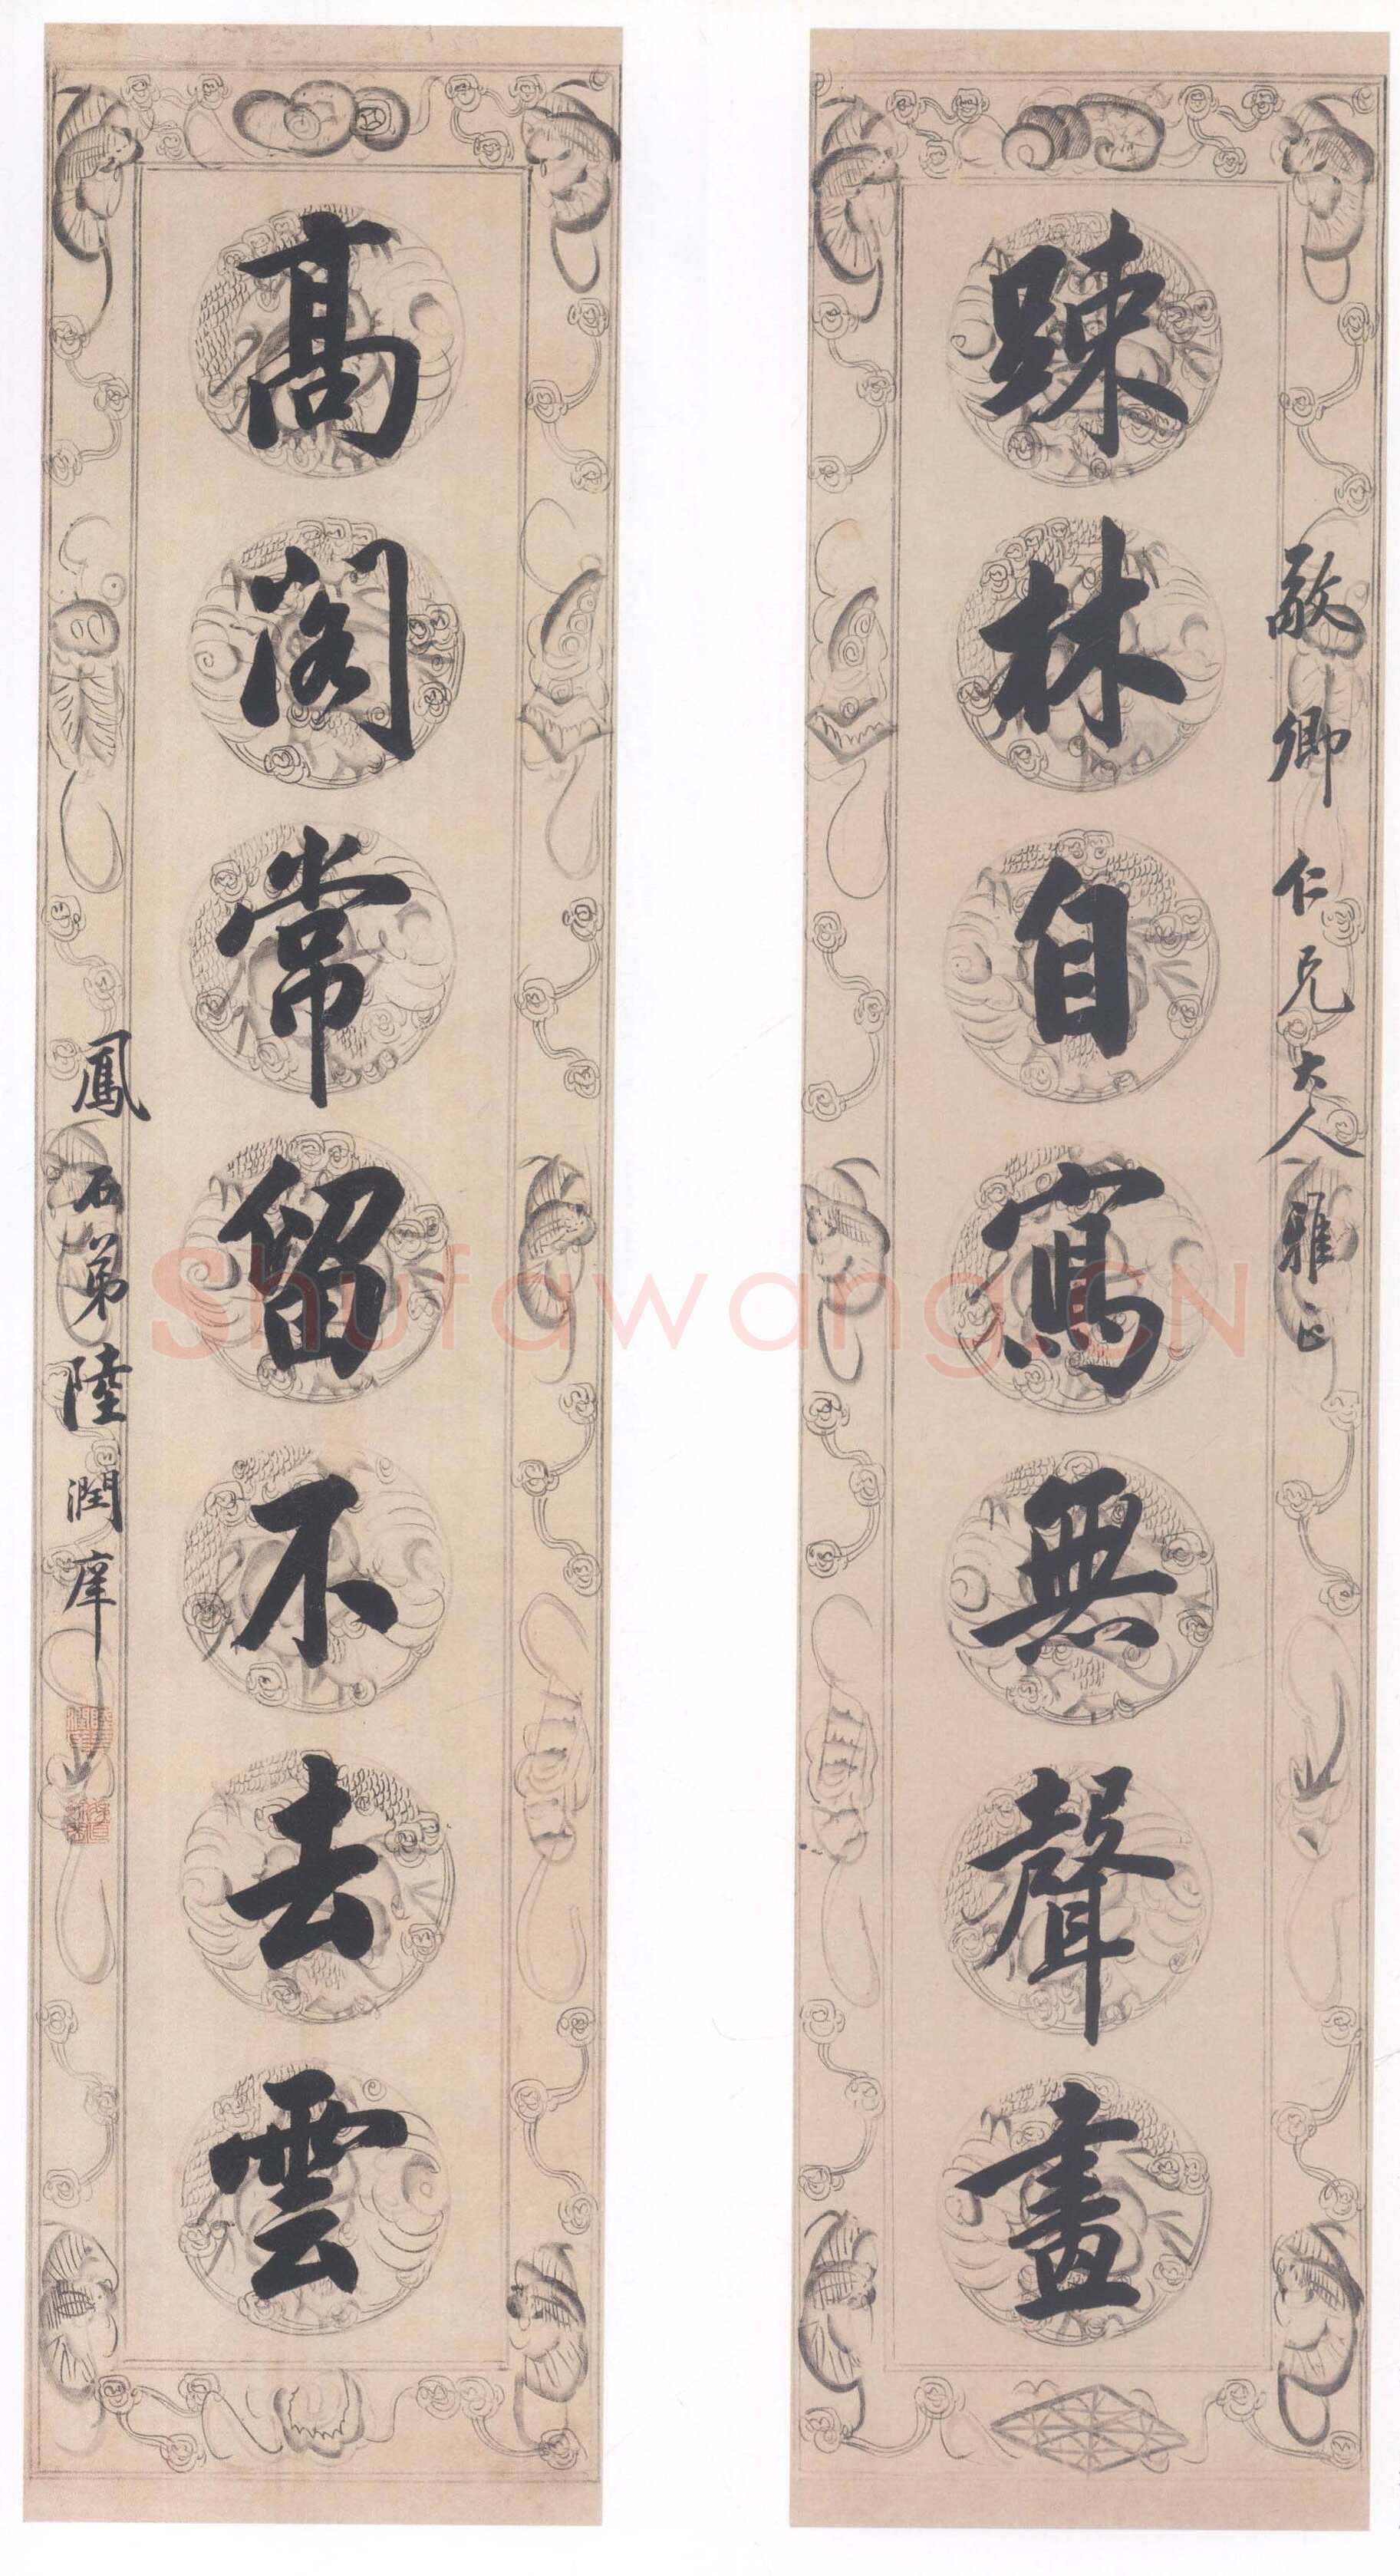 敬卿仁兄大人雅正
踈林自寫無聲畫
高閣常留不去雲
鳳石弟陸潤庠
Shufawang.CN